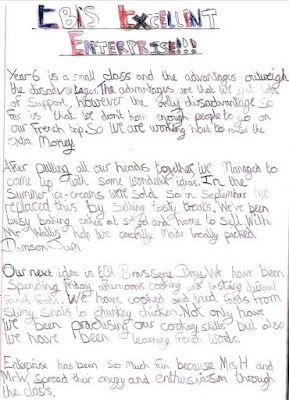 EBIS EXCELLENT
ENTERPRISE!!!
Year 6 is a small class and the advantages outweigh
the disadvantages. The advantages are that we get lots
of support, however the only disadvantage so
far is that we don't have enough people to go on
our French trip. So we are working hard to raise the
extra money.
After pulling all our heads together, we managed to
come up with some wonderful ideas. In the
summer ice-creams were sold so in September we
replaced this by selling tasty treats. We've been
busy baking cakes at school and home to sell. With
Mr Wallis help we carefully made locally picked
Damson Jam
Our next idea is EBI Brasserie Day. We have been
spending Friday afternoons cooking and tasting different
French foods. We have cooked and tried foods from
slimy snails to chunkey chicken. Not only have
we been practising our cooking skills but also
we have been learning French words.
Enterprise has been so much fun because Mrs H and
Mr W spread their energy and enthusiasm through
the class.